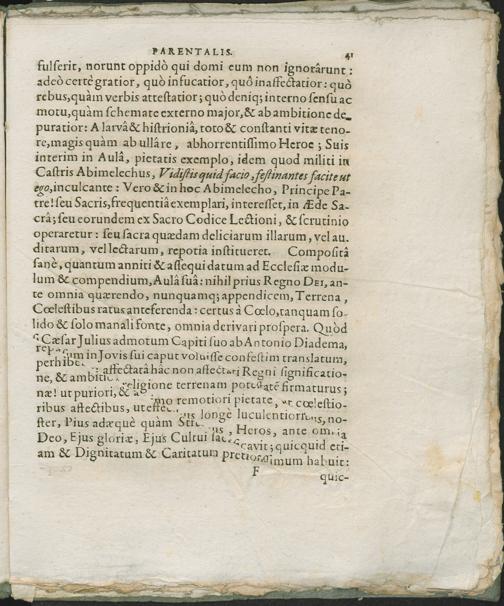 PARENTALIS. 41
fulserit, norunt oppidò qui domi eum non ignorârunt:
adeò certè gratior, quò infucatior, quô inaffectatior: quò
rebus, quàm verbis attestatior; quò deniq; interno sensu ac
motu, quàm schemate externo major, & ab ambitione de-
puratior: A larvâ & histrioniâ, toto & constanti vitæ teno-
re, magis quàm ab ullâ re, abhorrentissimo Heroe; Suis
interim in Aulâ, pietatis exemplo, idem quod militi in
Castris Abimelechus, Vidistis quid facio, festinantes facite ut
ego, inculcante: Vero & in hoc Abimelecho, Principe Pa-
tre! seu Sacris, frequentiâ exemplari, interesset, in Æde Sa-
crâ; seu eorundem ex Sacro Codice Lectioni, & scrutinio
operaretur: seu sacra quædam deliciarum illarum, vel au.
ditarum, vel lectarum, repotia institueret. Compositâ
sanè, quantum anniti & assequi datum ad Ecclesiæ modu-
lum & compendium, Aulâ suâ: nihil prius Regno DEI, an-
te omnia quærendo, nunquamq; appendicem, Terrena,
Cœlestibus ratus anteferenda: certus à Cœlo, tanquam so-
lido & solo manali fonte, omnia derivari prospera. Quòd
si Cæsar Julius admotum Capiti suo ab Antonio Diadema,
in Jovis sui caput voluisse confestim translatum,
perhibe : affectatâ hâc non affectati Regni significatio-
ne, & religione terrenam potestatē firmaturus;
næ! ut puriori, & remotiori pietate, ut cœlestio-
ribus affectibus, ut longè luculentioribus, no-
ster, Pius adæquè quàm Heros, ante omnia
Deo, Ejus gloriæ, Ejus Cultui quicquid eti-
am & Dignitatum & Caritatum pretiosissimum habuit:
F
quic-